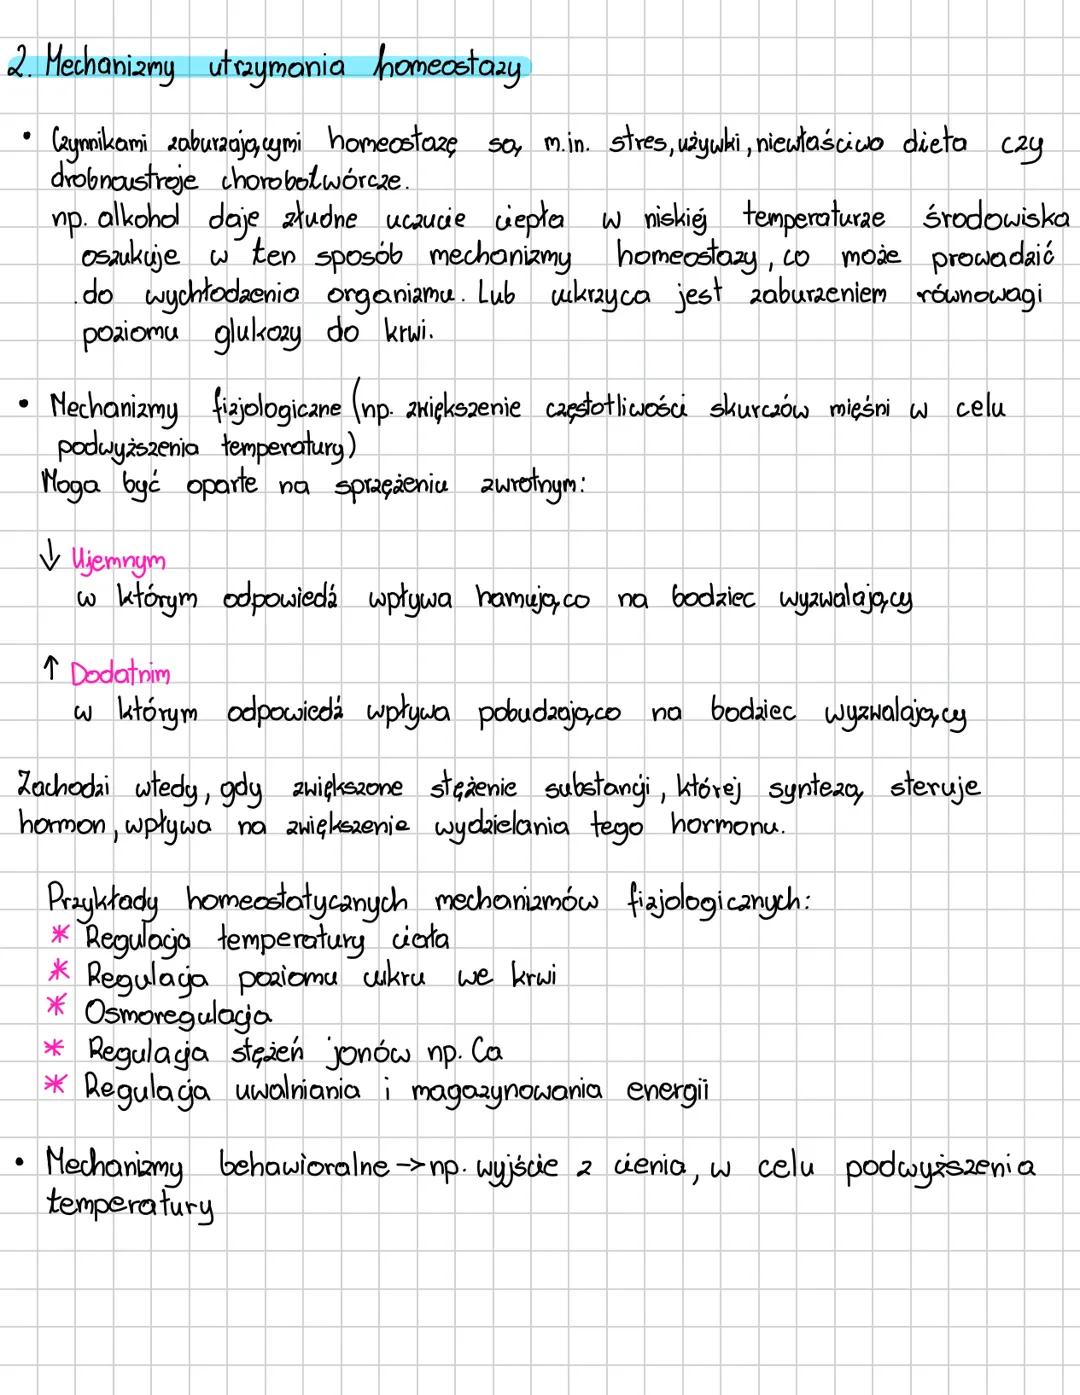 2. Mechanizmy utrzymania homeostazy
• Czynnikami zaburzającymi homeostazę są m.in. stres, używki, niewłaściwa dieta czy
drobnoustroje chorobotwórcze.
np. alkohol daje złudne uczucie ciepła w niskiej temperaturze środowiska
oszukuje w ten sposób mechanizmy homeostazy, co może prowadzić
do wychłodzenia organizmu. Lub cukrzyca jest zaburzeniem równowagi
poziomu glukozy do krwi.
• Mechanizmy fizjologiczne (np. zwiększenie częstotliwości skurczów mięśni w celu
podwyższenia temperatury)
Moga być oparte na sprzężeniu zwrotnym:
↓ Ujemnym
w którym odpowiedź wpływa hamująco na bodziec wyzwalający
↑ Dodatnim
w którym odpowiedź wpływa pobudzająco na bodziec wyzwalający
Zachodzi wtedy, gdy zwiększone stężenie substancji, której syntezą steruje
hormon, wpływa na zwiększenie wydzielania tego hormonu.
Przykłady homeostatycznych mechanizmów fizjologicznych:
* Regulacja temperatury ciała
* Regulacja poziomu cukru we krwi
* Osmoregulacja
* Regulacja stężeń jonów np. Ca
* Regulacja uwalniania i magazynowania energii
• Mechanizmy behawioralne → np. wyjście z cienia, w celu podwyższenia
temperatury